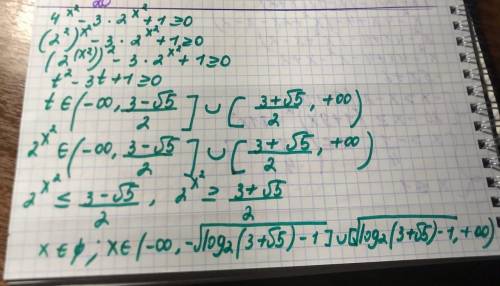 4^{x^2} - 3 · 2^{x^2} + 1 ≥ 0
(2^2)^{x^2} - 3 · 2^{x^2} + 1 ≥ 0
(2^{(x^2)})^2 - 3 · 2^{x^2} + 1 ≥ 0
t^2 - 3t + 1 ≥ 0
t ∈ (-∞, \frac{3-√5}{2}] ∪ [\frac{3+√5}{2}, +∞)
2^{x^2} ∈ (-∞, \frac{3-√5}{2}] ∪ [\frac{3+√5}{2}, +∞)
2^{x^2} ≤ \frac{3-√5}{2}, 2^{x^2} ≥ \frac{3+√5}{2}
x ∈ ∅; x ∈ (-∞, -√{log_2(3+√5) - 1}] ∪ [√{log_2(3+√5) - 1}, +∞)